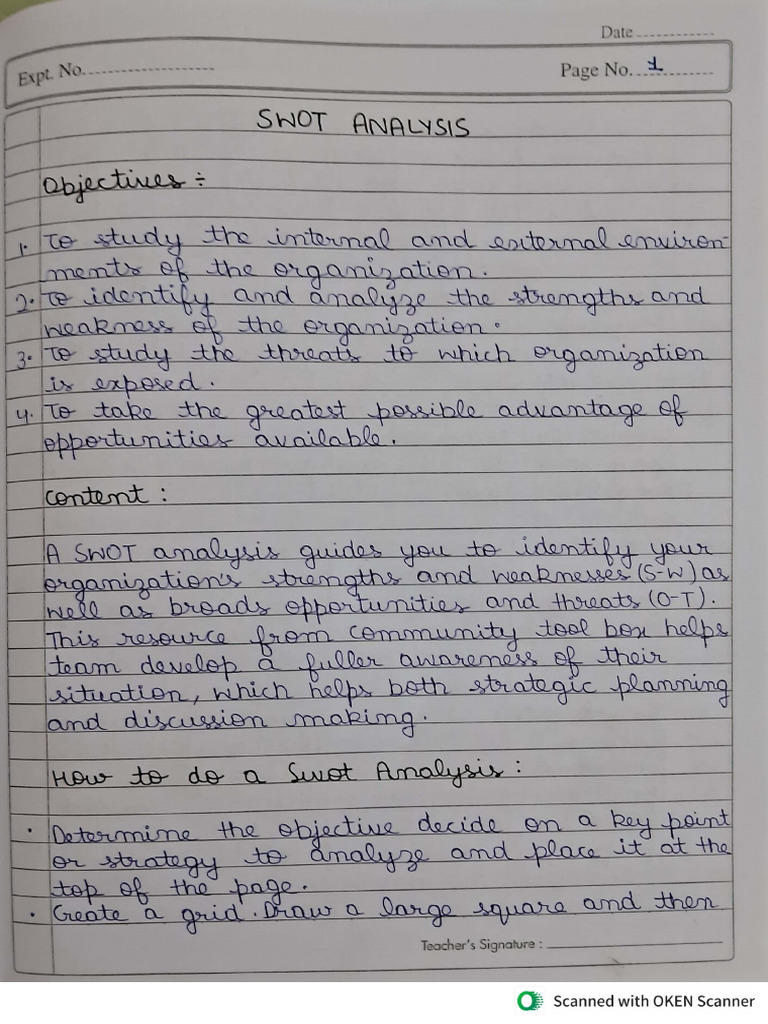 Date ............
Expt. No. ........................
Page No. 1 ............
SWOT ANALYSIS
Objectives ÷
1. To study the internal and external environ-
ments of the organization.
2. To identify and analyze the strengths and
weakness of the organization.
3. To study the threats to which organization
is exposed.
4. To take the greatest possible advantage of
opportunities available.
Content :
A SWOT analysis guides you to identify your
organization's strengths and weaknesses (S-W) as
well as broads opportunities and threats (O-T).
This resource from community tool box helps
team develop a fuller awareness of their
situation, which helps both strategic planning
and discussion making.
How to do a Swot Analysis :
• Determine the objective decide on a key point
or strategy to analyze and place it at the
top of the page.
• Create a grid. Draw a large square and then
Teacher's Signature : ____________
Scanned with OKEN Scanner